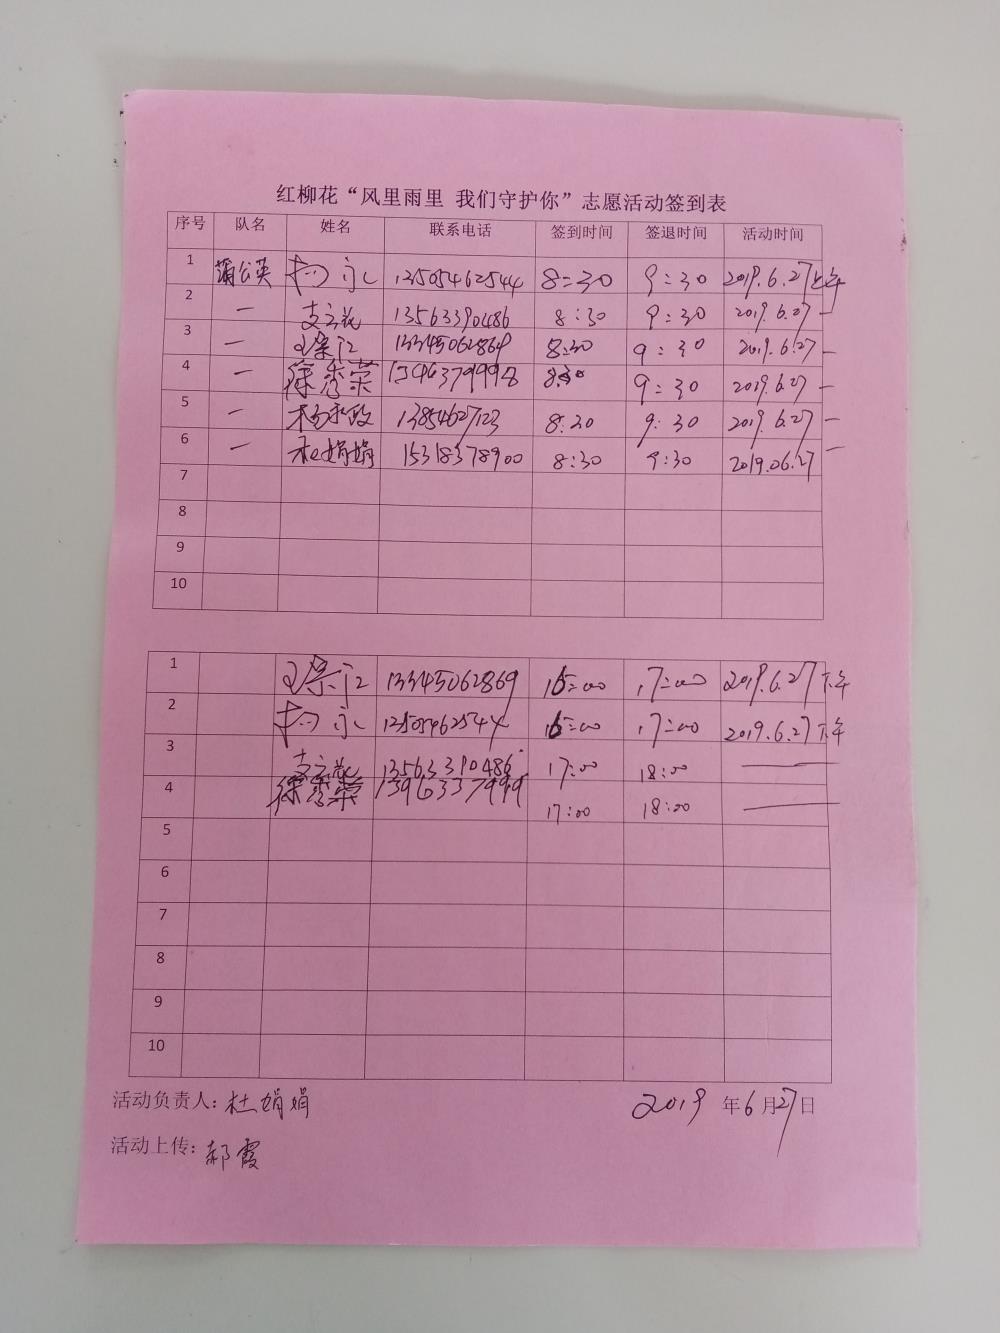 红柳花“风里雨里 我们守护你”志愿活动签到表
序号 队名 姓名 联系电话 签到时间 签退时间 活动时间
1 蒲公英 8:30 9:30 2019.6.27上午
2 一 支立花 13563390486 8:30 9:30 2019.6.27 一
3 一 13345062869 8:30 9:30 2019.6.27 一
4 一 徐秀荣 8:30 9:30 2019.6.27 一
5 一 13854627123 8:30 9:30 2019.6.27 一
6 一 杜娟娟 15318378900 8:30 9:30 2019.06.27 一
7
8
9
10
1 13345062869 17:00 2019.6.27下午
2 17:00 2019.6.27下午
3 支立花 13563390486 17:00 18:00
4 徐秀荣 17:00 18:00
5
6
7
8
9
10
活动负责人:杜娟娟 2019年6月27日
活动上传:郝霞